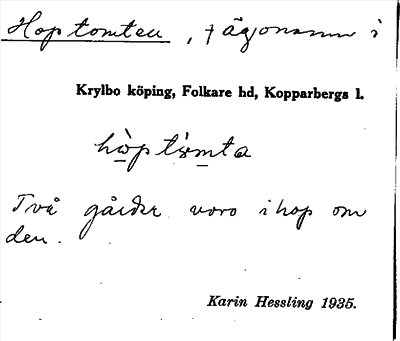 Hoptomten, † ägonamn i
Krylbo köping, Folkare hd, Kopparbergs l.
Två gårdar voro ihop om
den.
Karin Hessling 1935.